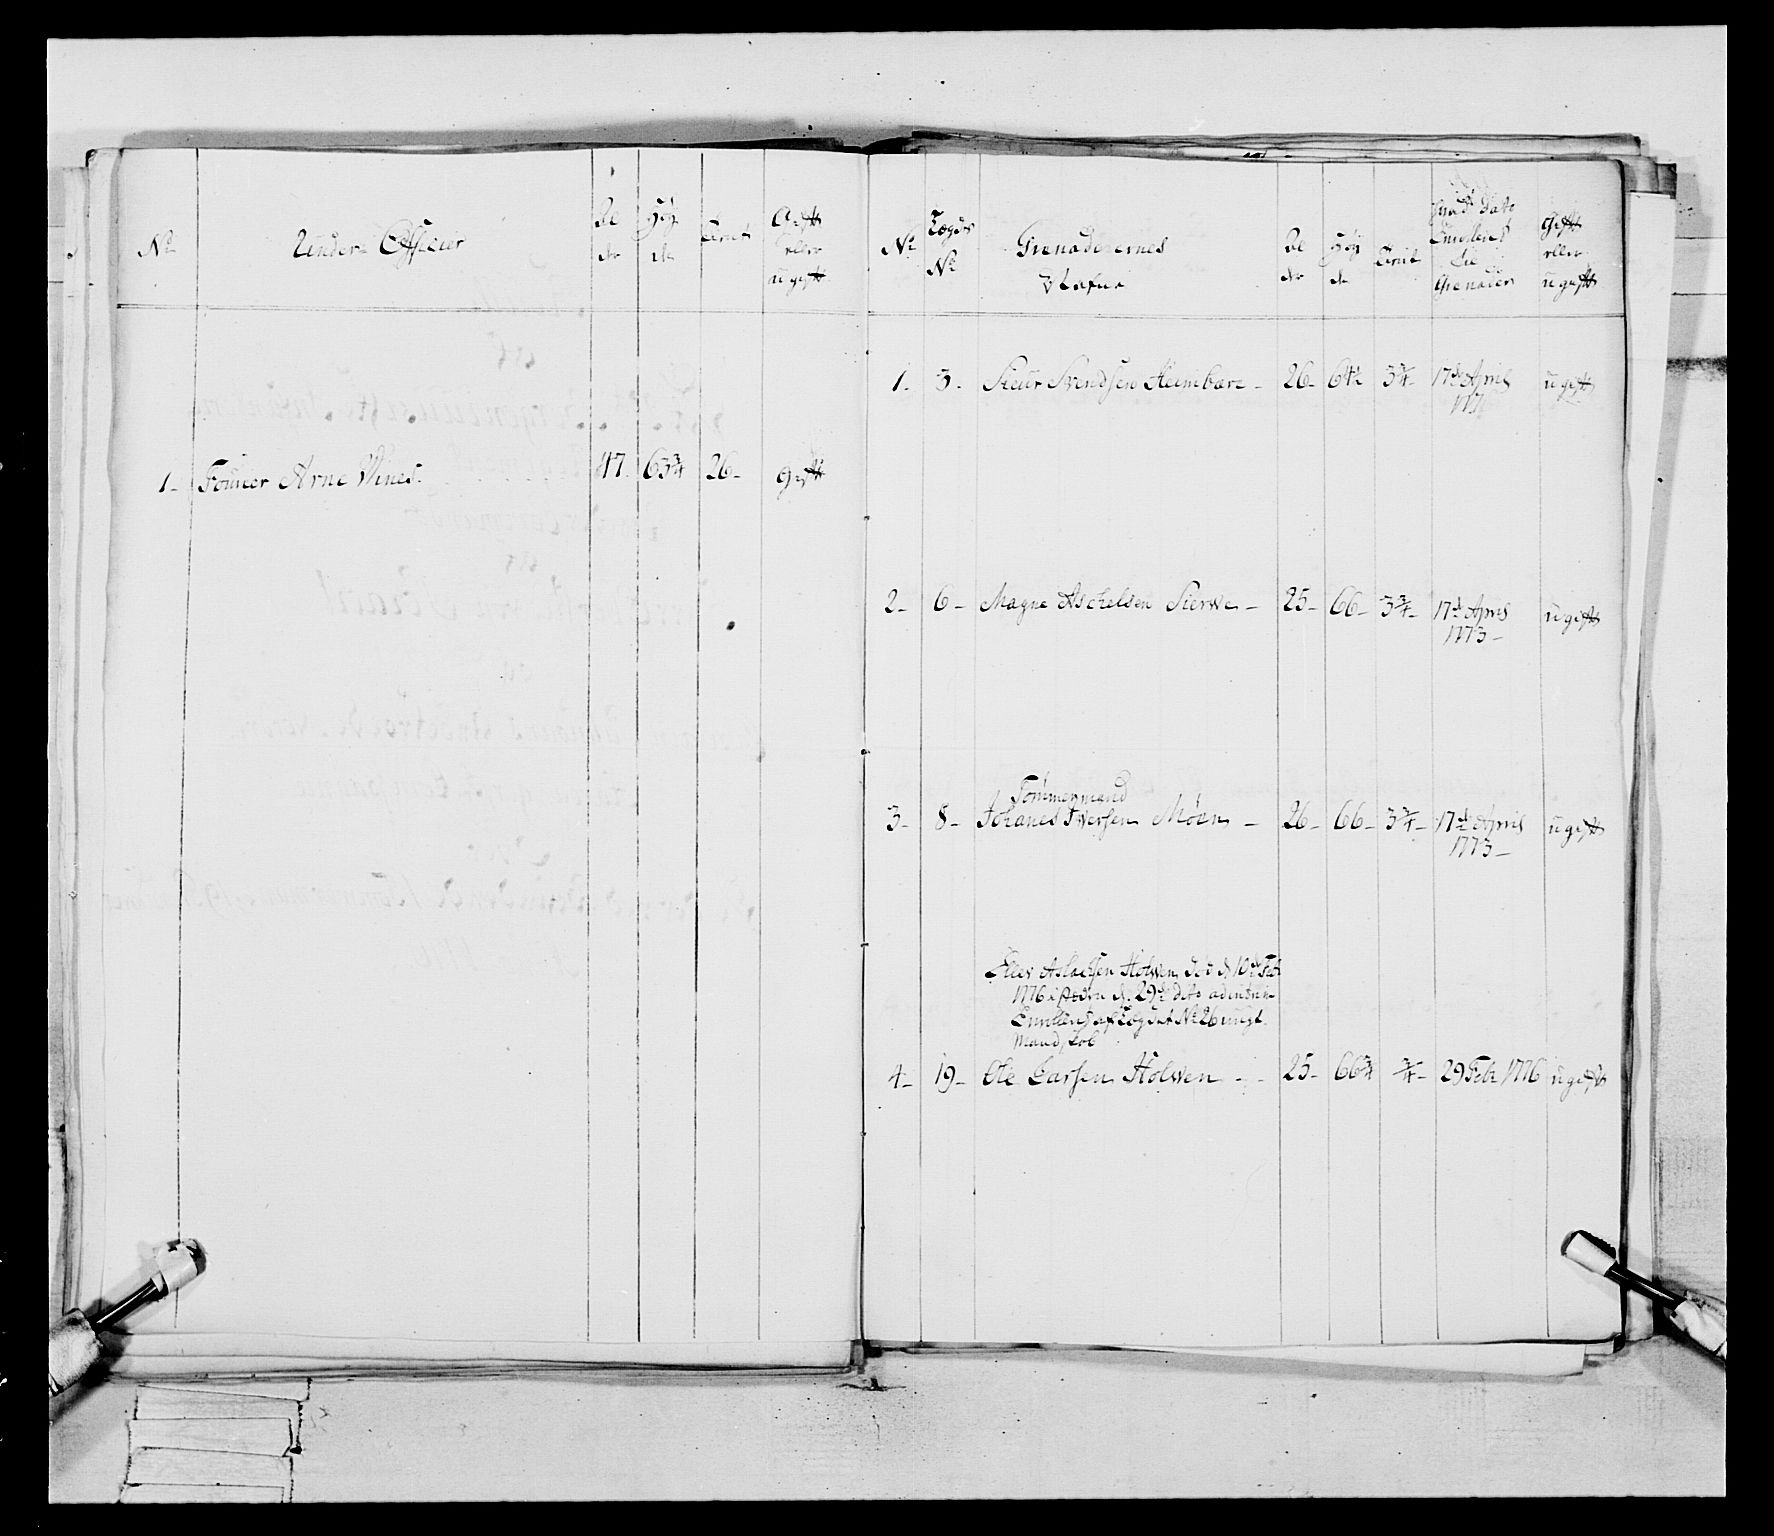 No Under Officier Al der Höy de Tient Gift eller ugift
1- Fourier Arne Vines. 47. 63¾ 26- gift
No Lægds No Grenadeernes Nafne Al der Höy de Tient hvad Dato Enrollert til Grenader Gift eller ugift
1- 3- Siur Svendsen Heimbere - 26- 64½ 3¾- 17de April ugift
177
2- 6- Magne Aschelsen Sierwe - 25- 66- 3¾- 17de April ugift
1773-
Tömmermand
3- 8- Johanes Iversen Möen - 26- 66- 3¾- 17de April ugift
1773-
Ellev Aslachsen Holven död d 10de Feb
1776 isteden d. 29de dito
Enrollert af Lægdet No 26 ungt
Mandskob
4- 19- Ole Larsen Holven - 25- 66¾ ¾- 29 Feb: 1776 ugift